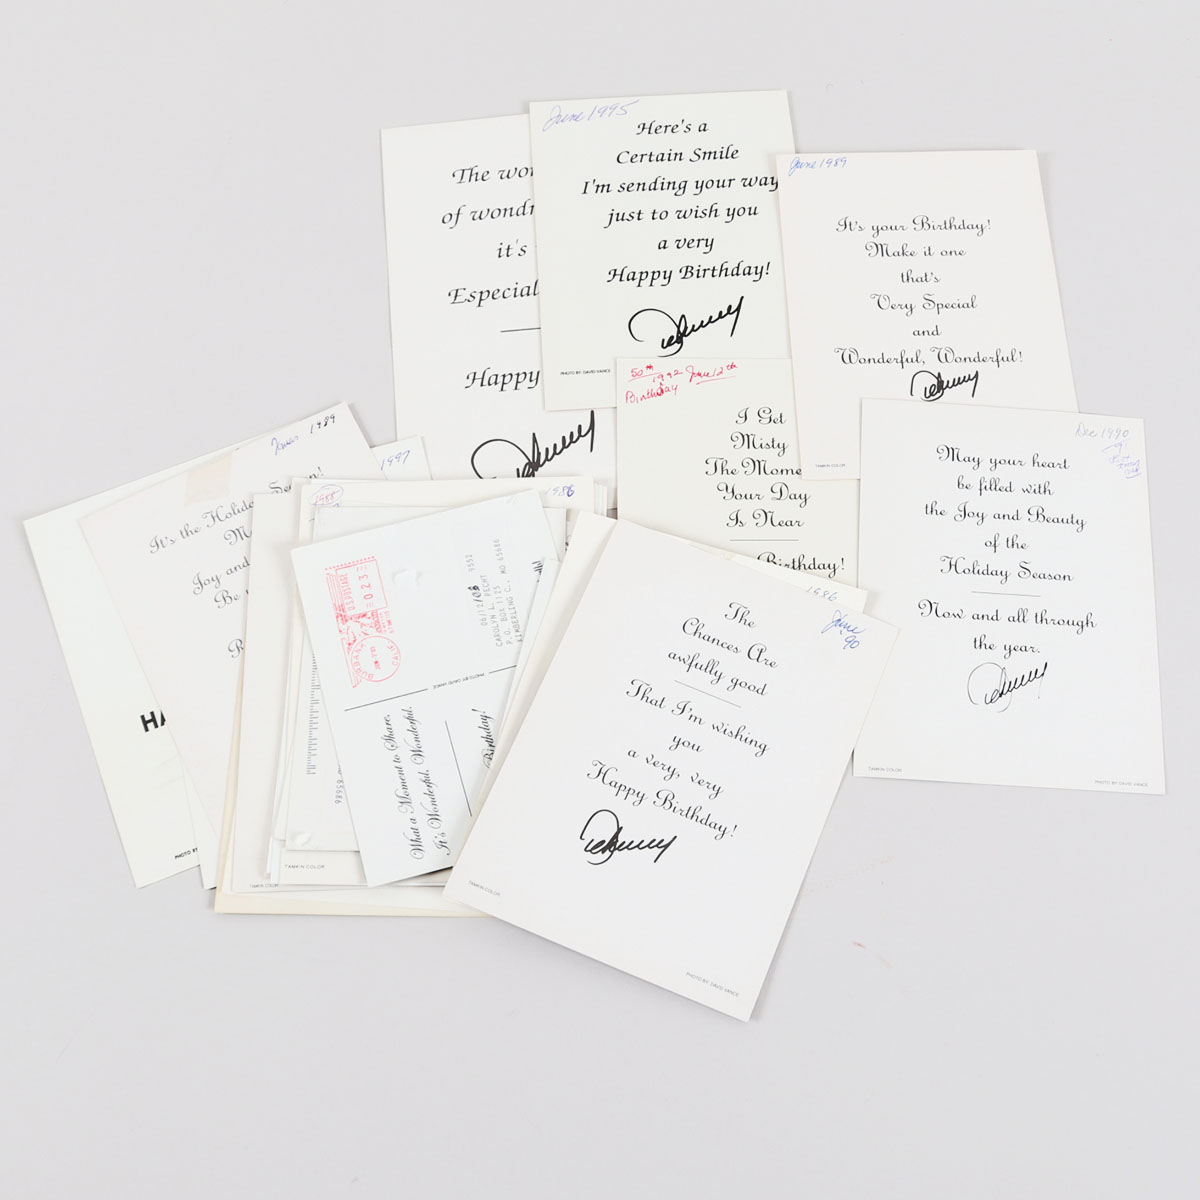 The
of
it's
Happy
Johnny
June 1995
Here's a
Certain Smile
I'm sending your way
just to wish you
a very
Happy Birthday!
Johnny
PHOTO BY DAVID VANCE
June 1989
It's your Birthday!
Make it one
that's
Very Special
and
Wonderful, Wonderful!
Johnny
TAMKIN COLOR
50th
1992 June 12th
Birthday
I Get
Misty
The
Your Day
Is Near
Birthday!
Dec 1990
May your heart
be filled with
the Joy and Beauty
of the
Holiday Season
Now and all through
the year.
Johnny
TAMKIN COLOR
PHOTO BY DAVID VANCE
1989
It's the
Joy and
Be
PHOTO BY
1997
1988
1986
U.S. POSTAGE
BURBANK
CALIF
06/12/08 9552
CAROLYN L. FECHT
P. O. BOX 1125
KIMBERLING C., MO 65686
PHOTO BY DAVID VANCE
What a Moment to Share,
It's Wonderful, Wonderful.
Birthday!
65686
TAMKIN COLOR
TAMKIN COLOR
1986
June
90
The
Chances Are
awfully good
That I'm wishing
you
a very, very
Happy Birthday!
Johnny
TAMKIN COLOR
PHOTO BY DAVID VANCE